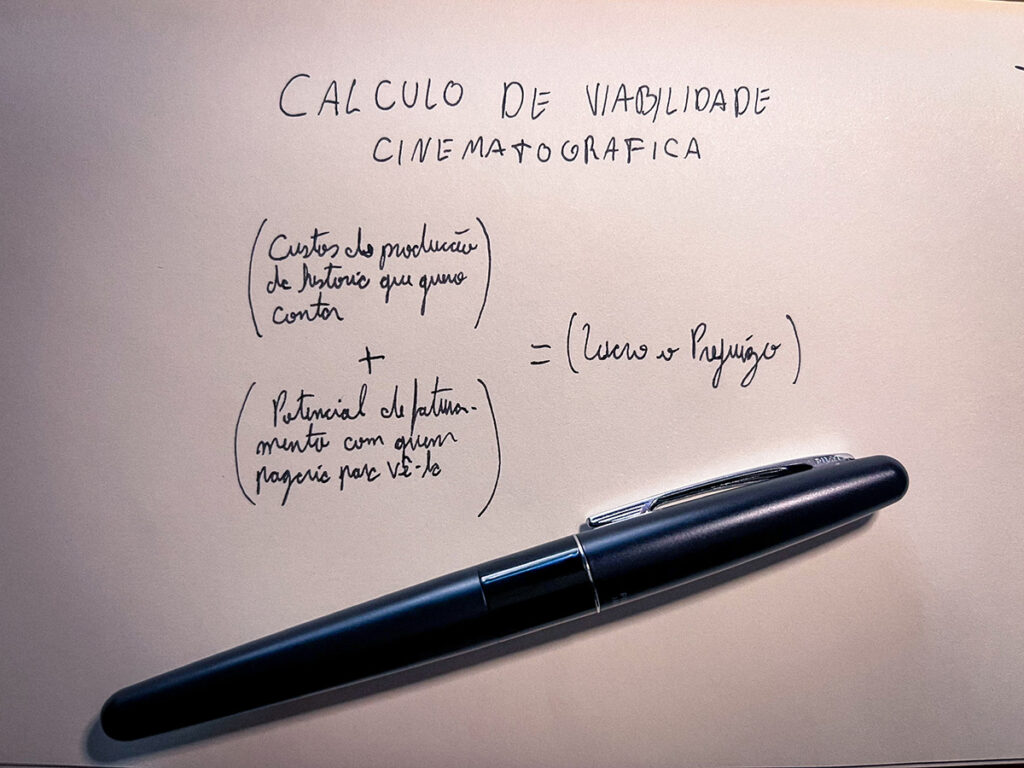 CALCULO DE VIABILIDADE
CINEMATOGRAFICA
(Custos de produção
da historia que quero
contar)
+
(Potencial de fatura-
mento com quem
pagaria para vê-la)
= (Lucro o Prejuízo)
PILOT